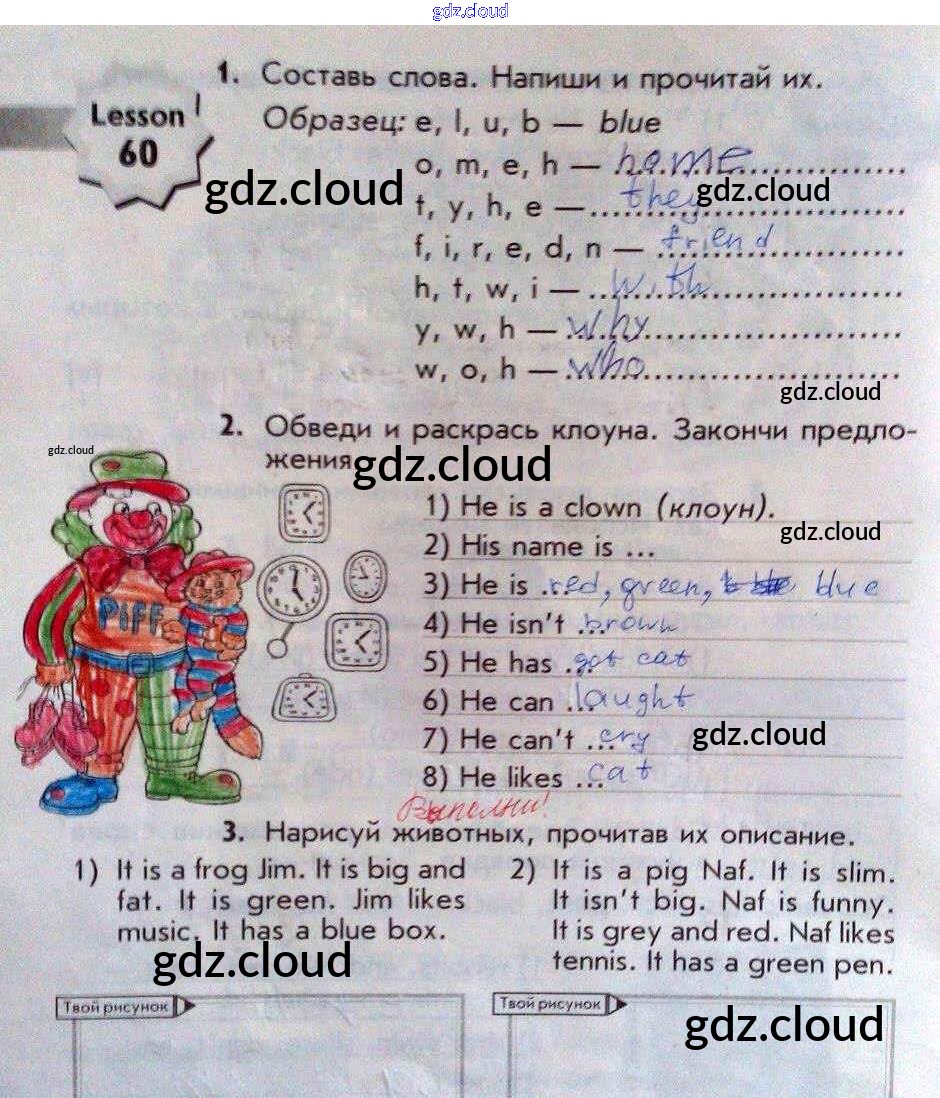 gdz.cloud
Lesson 60
1. Составь слова. Напиши и прочитай их.
Образец: e, l, u, b — blue
o, m, e, h — home
gdz.cloud
gdz.cloud
t, y, h, e — they
f, i, r, e, d, n — friend
h, t, w, i — with
y, w, h — why
w, o, h — who
gdz.cloud
2. Обведи и раскрась клоуна. Закончи предло-
жения
gdz.cloud
gdz.cloud
1) He is a clown (клоун).
gdz.cloud
2) His name is ...
3) He is ...red, green, blue
4) He isn't ...brown
5) He has ...got cat
6) He can ...laught
7) He can't ...cry
gdz.cloud
8) He likes ...cat
PIFF
Выполни!
3. Нарисуй животных, прочитав их описание.
1) It is a frog Jim. It is big and
fat. It is green. Jim likes
music. It has a blue box.
gdz.cloud
2) It is a pig Naf. It is slim.
It isn't big. Naf is funny.
It is grey and red. Naf likes
tennis. It has a green pen.
Твой рисунок
Твой рисунок
gdz.cloud